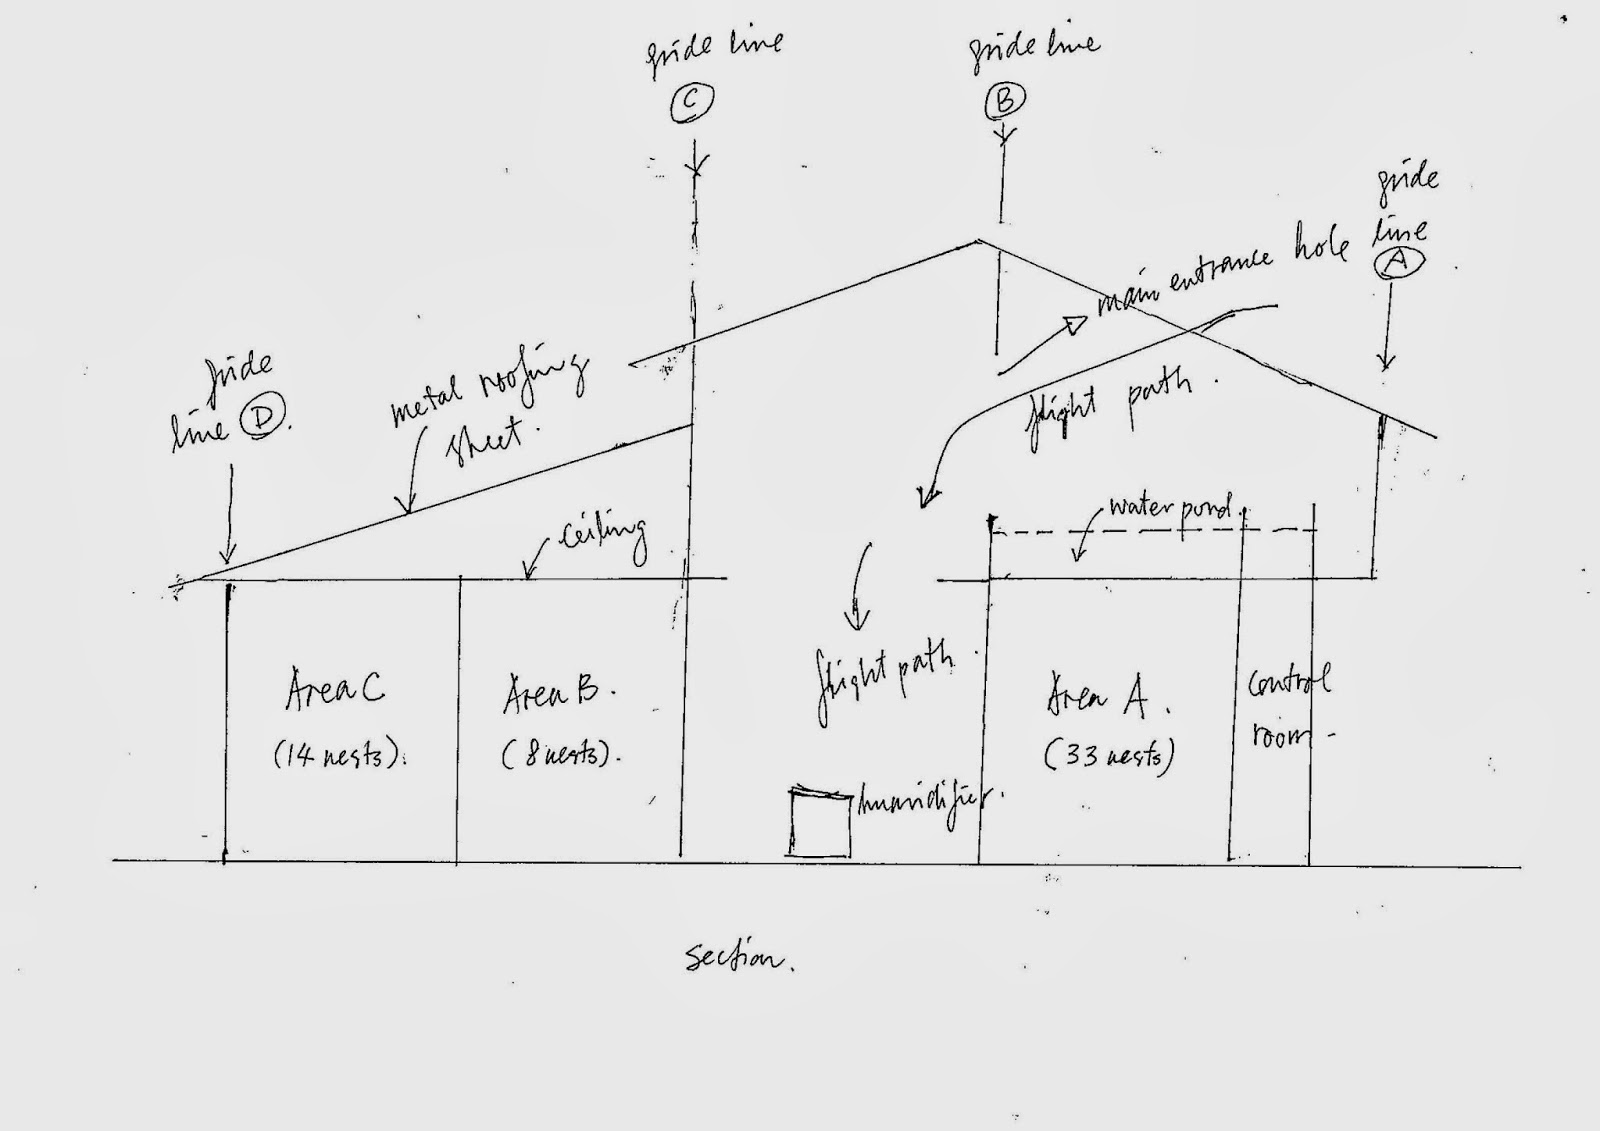 gride line
C
gride line
B
gride
line
A
main entrance hole
gride
line D.
metal roofing
sheet.
flight path.
water pond.
ceiling
flight path.
Area C
(14 nests).
Area B.
(8 nests).
Area A.
(33 nests)
control
room
humidifier.
section.